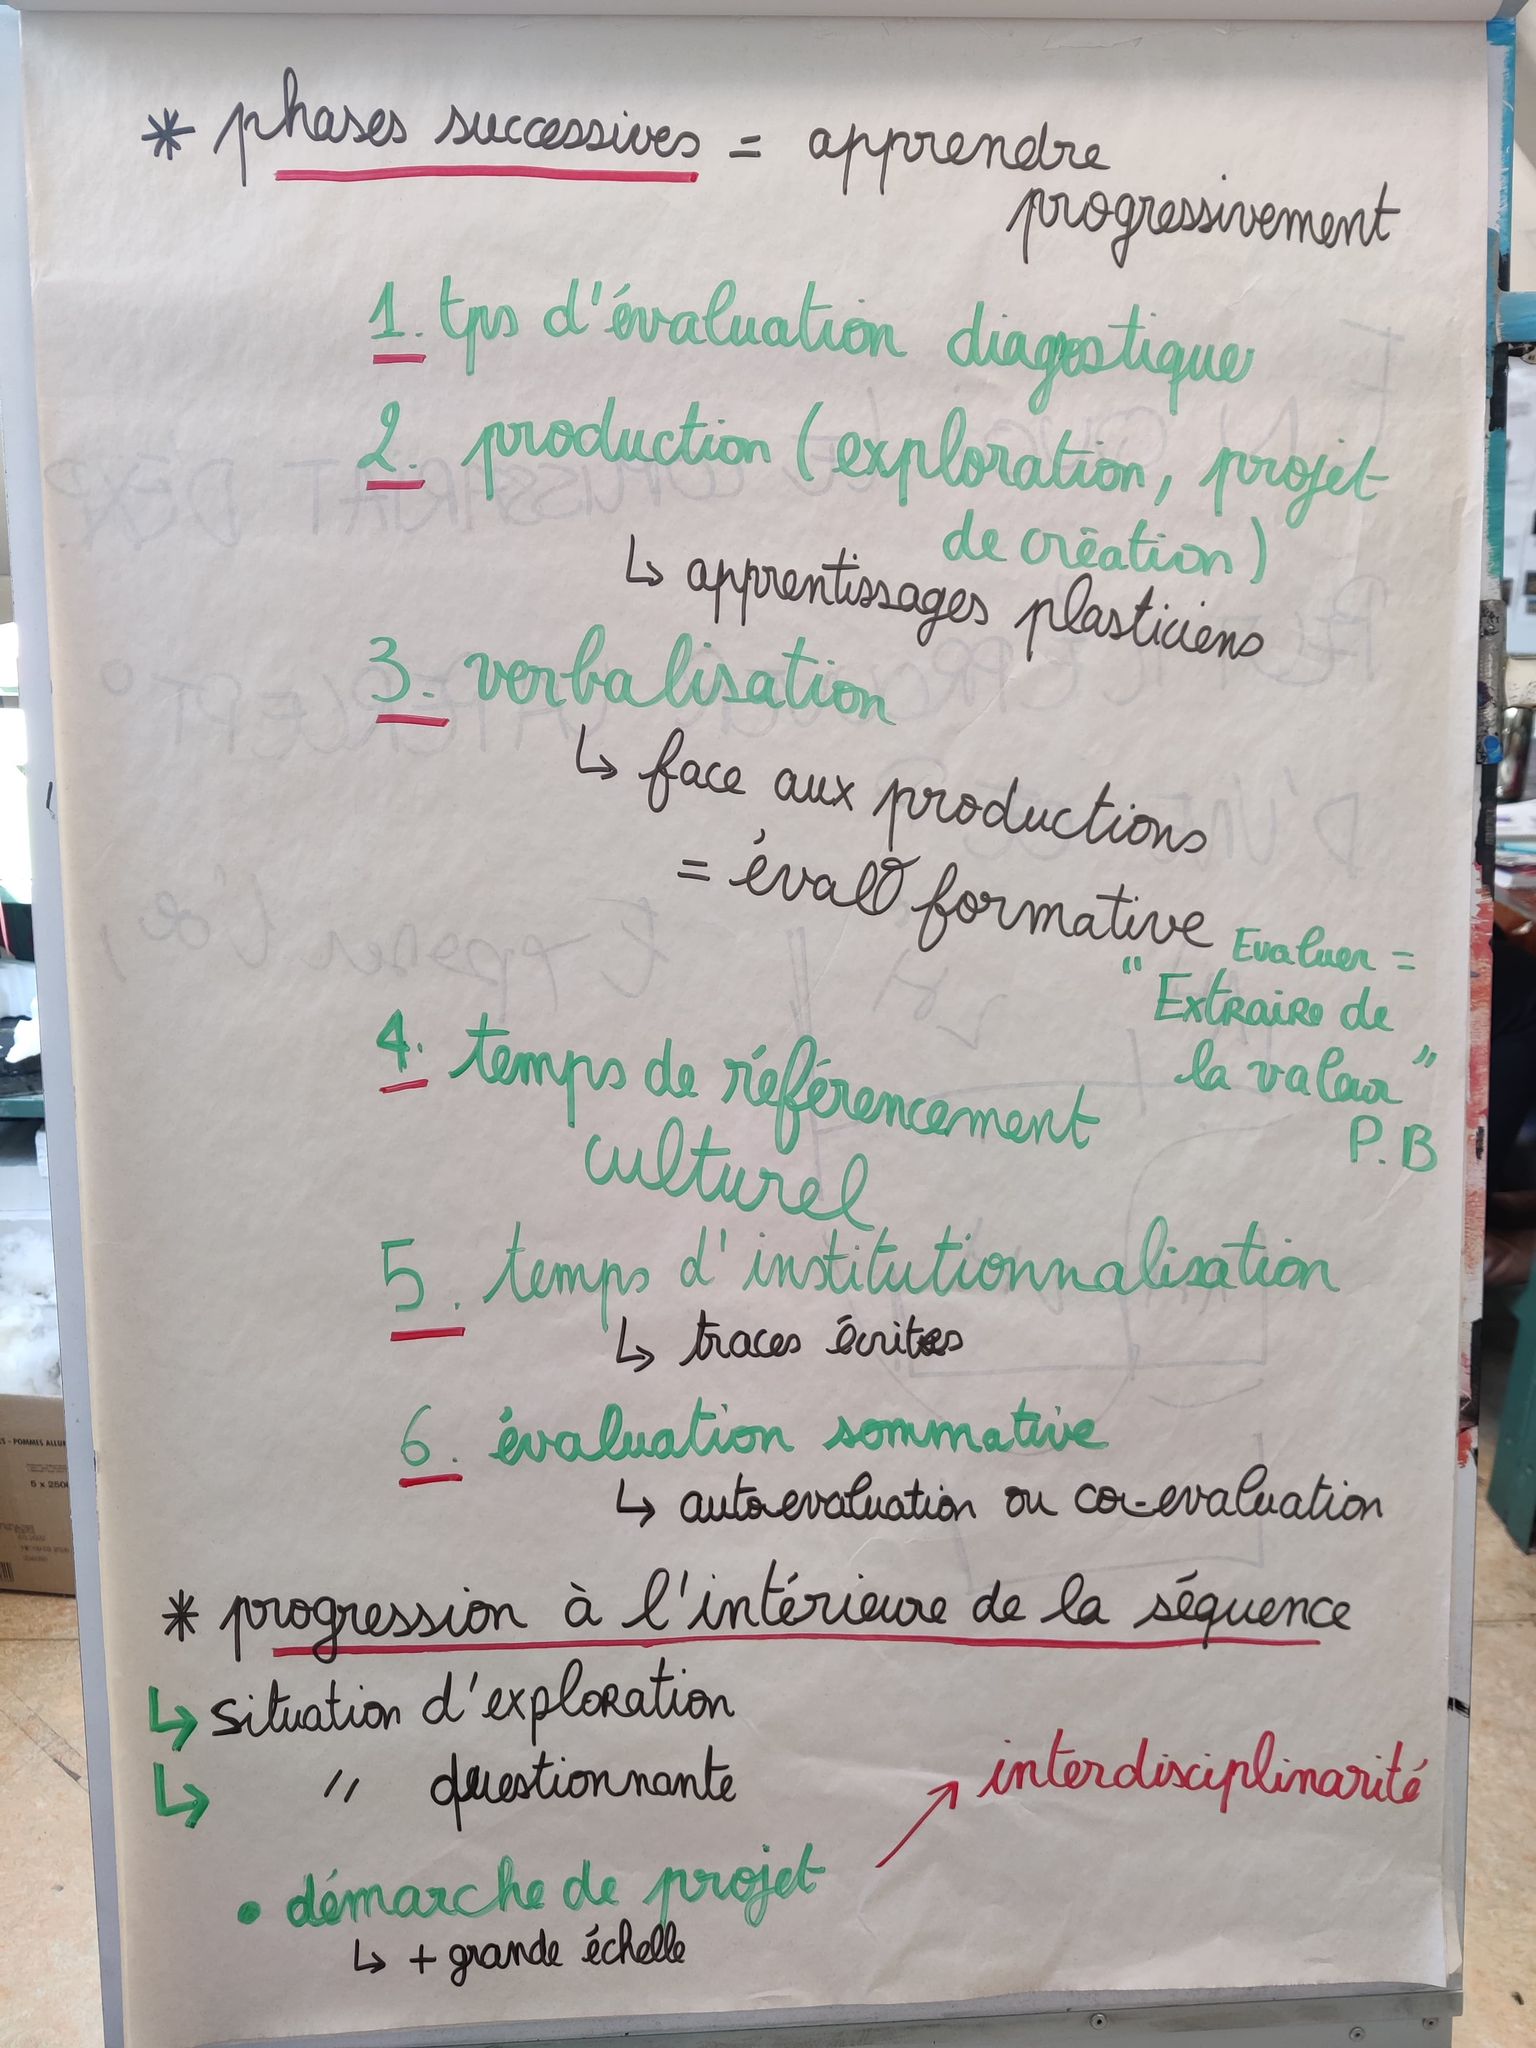 * phases successives = apprendre
progressivement
1. tps d'évaluation diagnostique
2. production (exploration, projet
de création)
↳ apprentissages plasticiens
3. verbalisation
↳ face aux productions
= éval° formative
Evaluer =
"Extraire de
la valeur"
P.B
4. temps de référencement
culturel
5. temps d'institutionnalisation
↳ traces écrites
6. évaluation sommative
↳ autoevaluation ou co-evaluation
* progression à l'intérieure de la séquence
↳ situation d'exploration
↳ " questionnante
interdisciplinarité
• démarche de projet
↳ + grande échelle
- POMMES ALLU